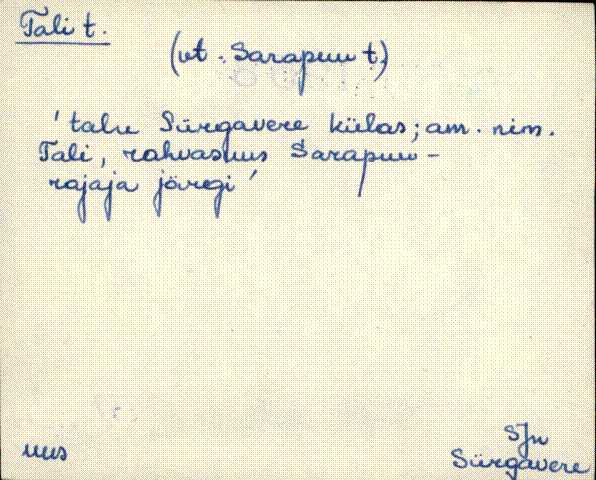 Tali t.
(vt. Sarapuu t.)
'talu Sürgavere külas; am. nim.
Tali, rahvasuus Sarapuu –
rajaja järgi'
uus
SJn
Sürgavere